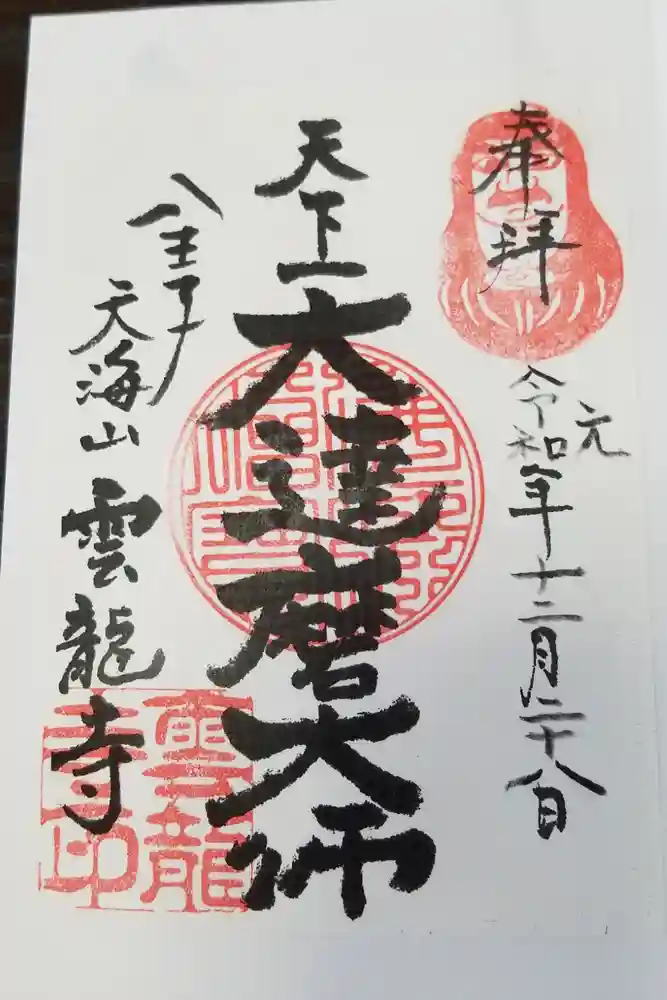 奉拝
令和元年十二月二十八日
天下一大達磨大師
八王子
天海山雲龍寺
雲龍
寺印